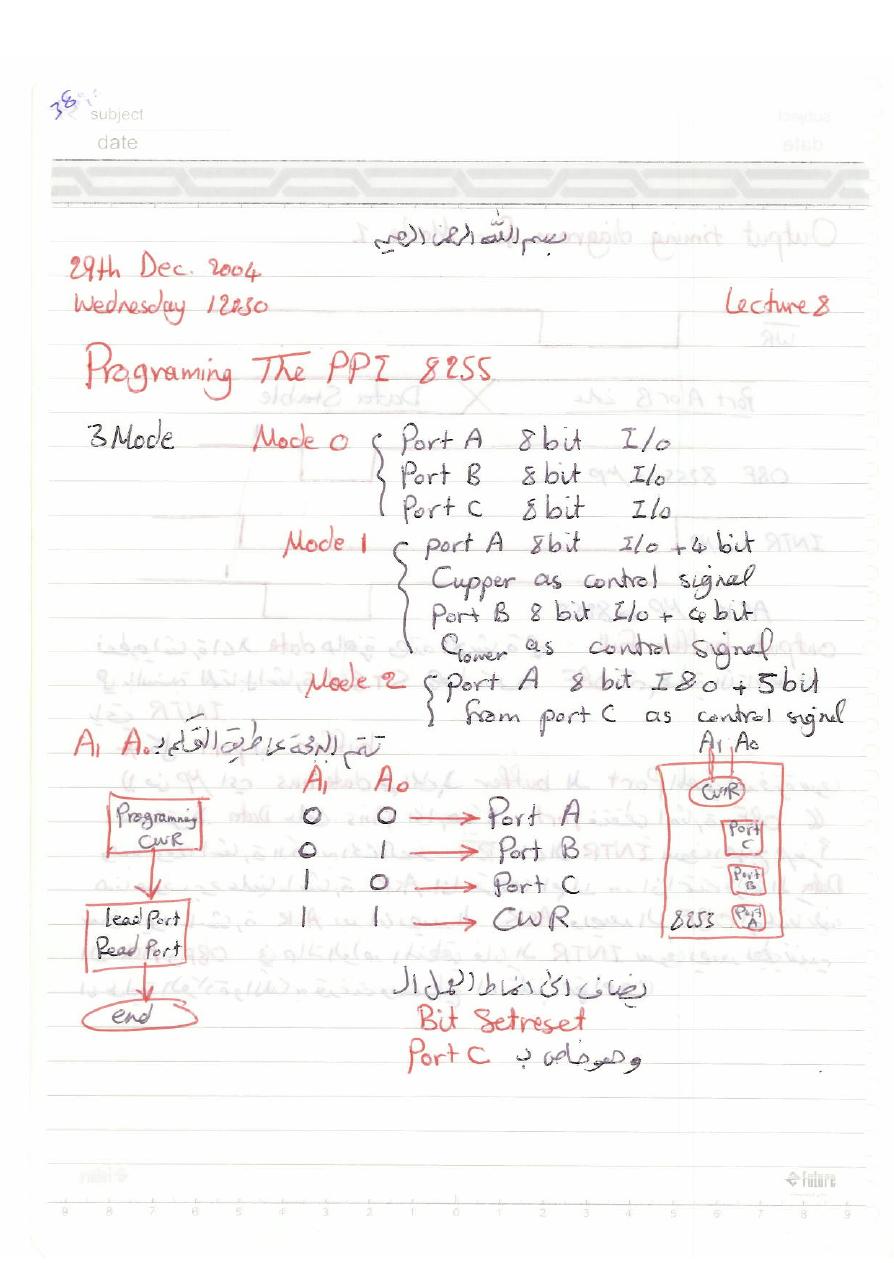 38
subject
date
بسم الله الرحمن الرحيم
29th Dec. 2004
Wednesday 12:30
Lecture 8
Programing The PPI 8255
3 Mode Mode 0 Port A 8 bit I/o
Port B 8 bit I/o
Port C 8 bit I/o
Mode 1 port A 8 bit I/o + 4 bit
Cupper as control signal
Port B 8 bit I/o + 4 bit
Clower as control signal
Mode 2 port A 8 bit I & o + 5 bit
from port C as control signal
تتم البرمجة عن طريق التحكم بـ A1 A0
A1 A0
A1 A0
0 0 → Port A
0 1 → Port B
1 0 → Port C
1 1 → CWR
Programing
CWR
Lead Port
Read Port
end
CWR
Port
C
Port
B
8253
Port
A
يضاف الى انماط العمل ال
Bit Setreset
وهو خاص بـ Port C
future
9 8 7 6 5 4 3 2 1 0 1 2 3 4 5 6 7 8 9